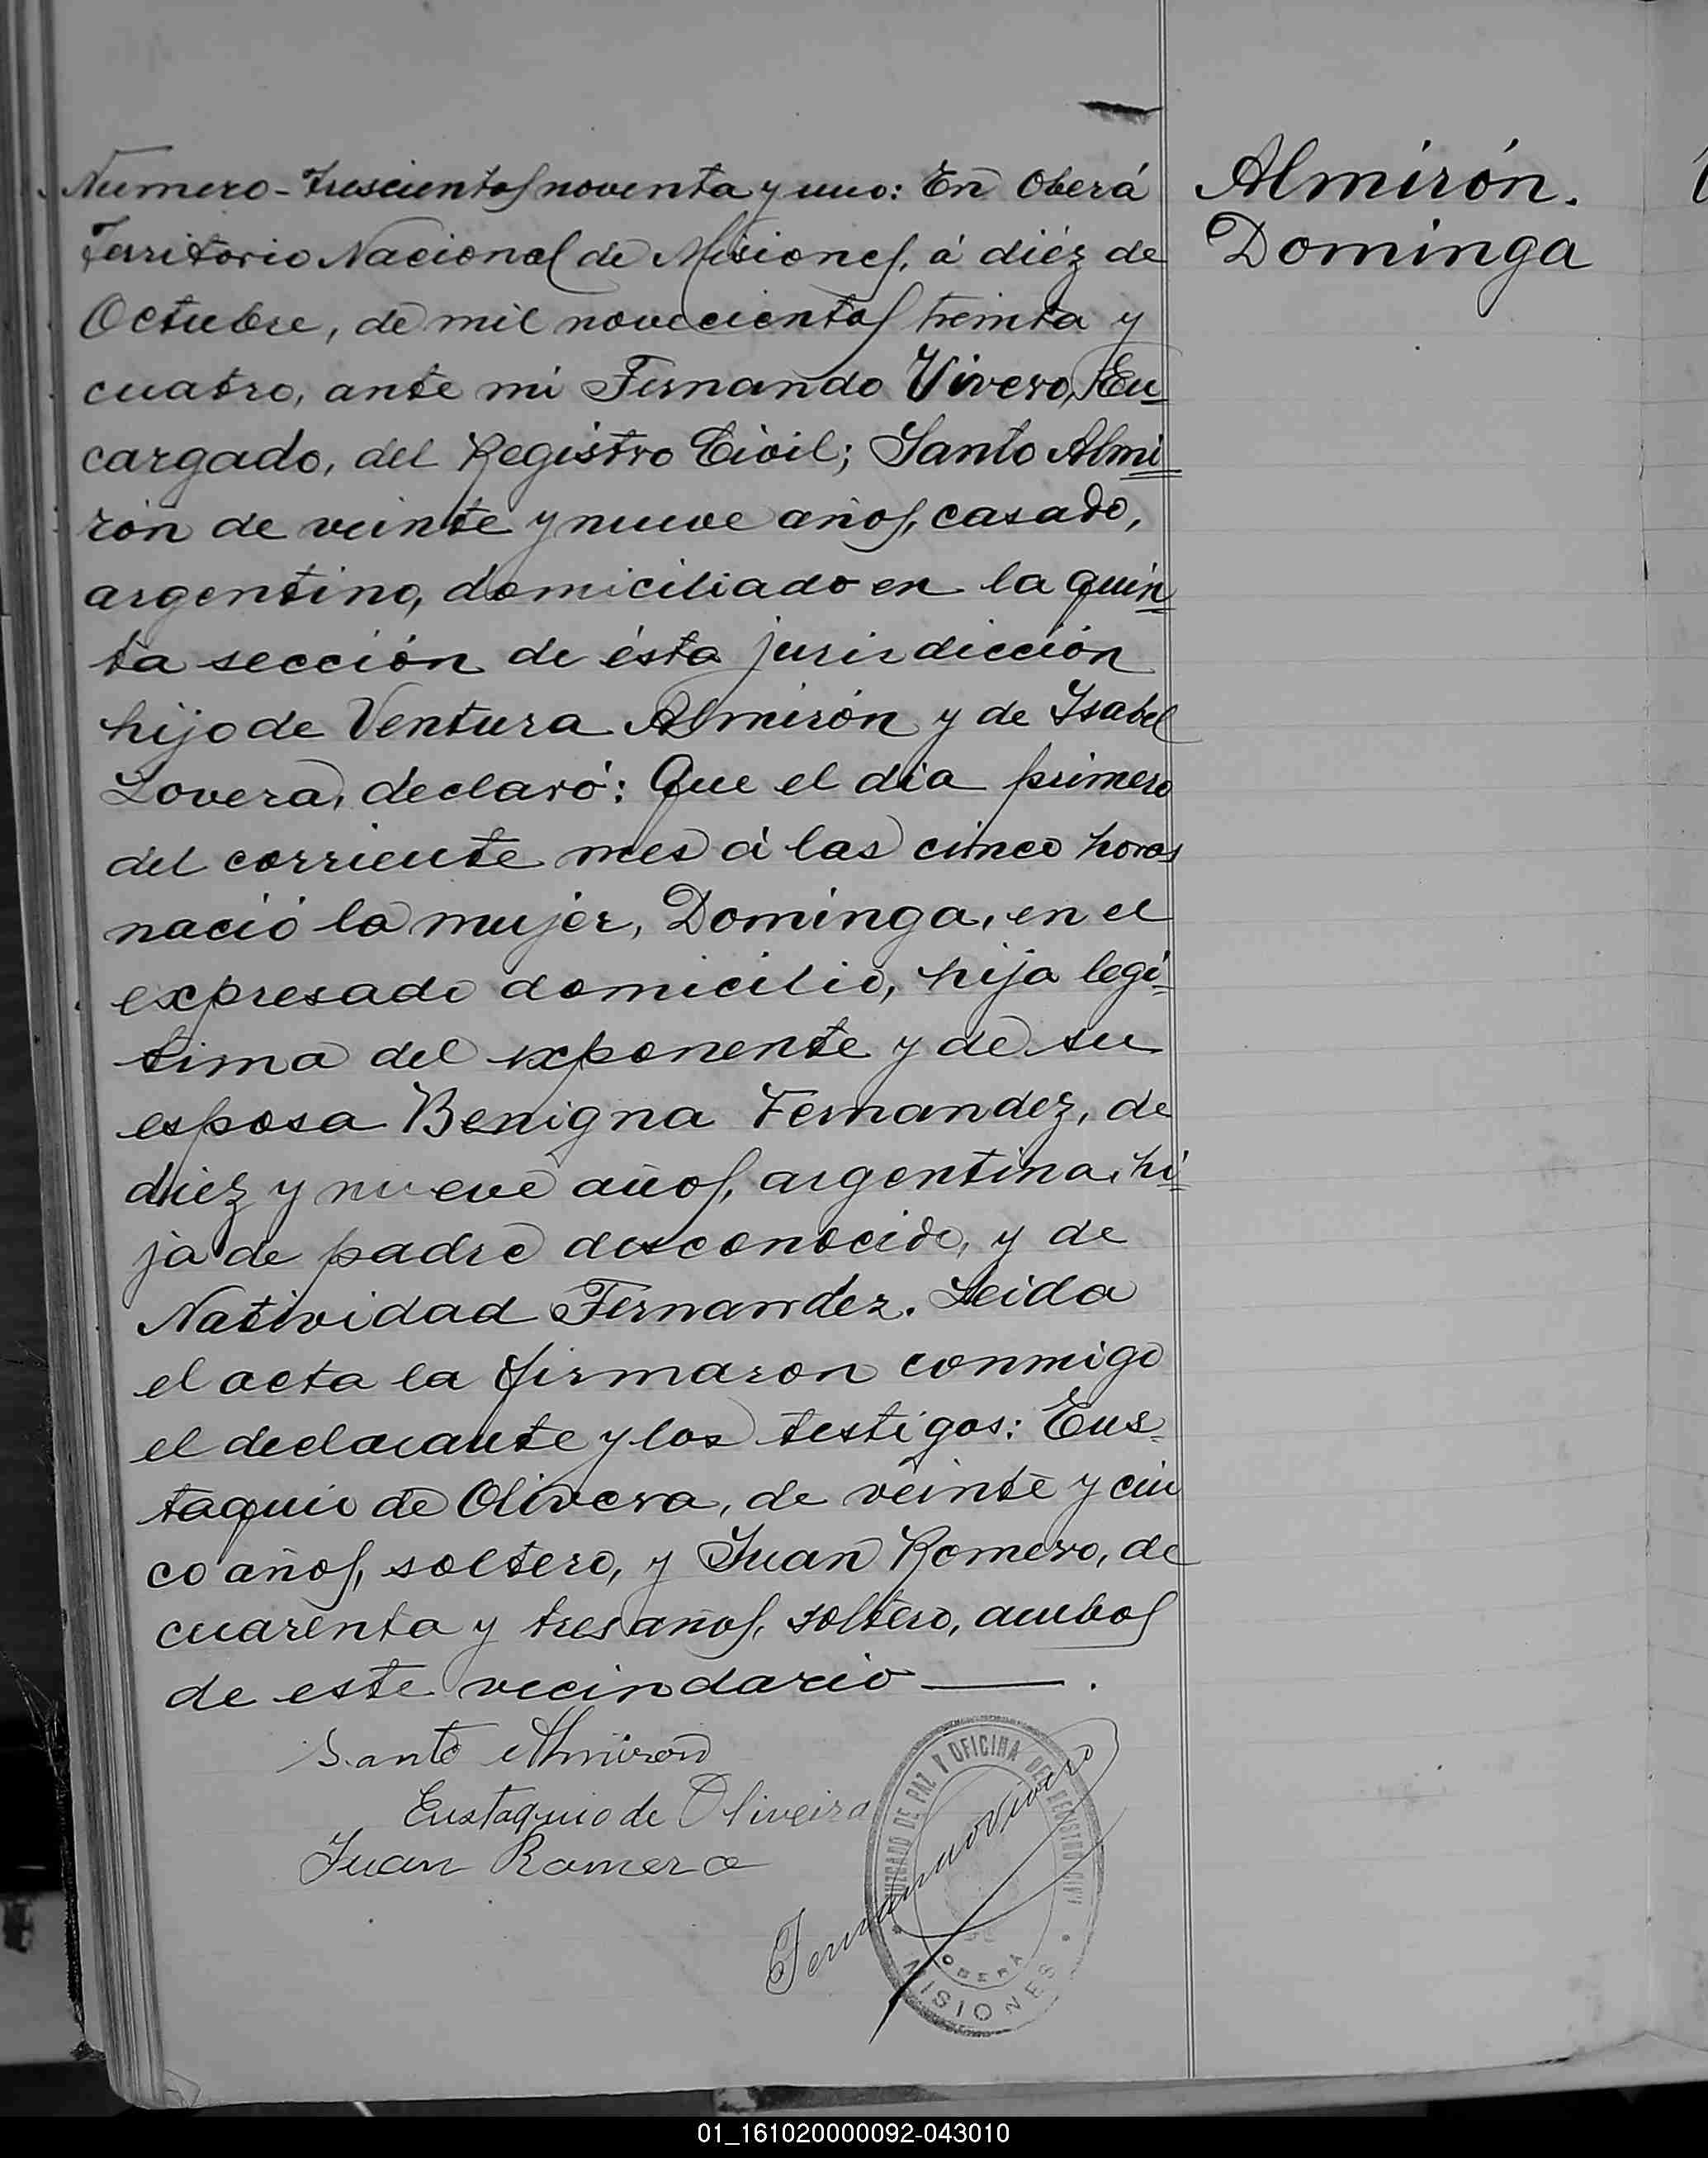 Numero - trescientos noventa y uno: En Oberá
Territorio Nacional de Misiones, á diéz de
Octubre, de mil novecientos treinta y
cuatro, ante mi Fernando Vivero, En
cargado, del Registro Civil; Santo Almi
rón de veinte y nueve años, casado,
argentino, domiciliado en la quin
ta sección de ésta jurisdicción
hijo de Ventura Almirón y de Isabel
Lovera, declaró: Que el dia primero
del corriente mes á las cinco horas
nació la mujer, Dominga, en el
expresado domicilio, hija legi-
tima del exponente y de su
esposa Benigna Fernandez, de
diez y nueve años, argentina, hi-
ja de padre desconocido, y de
Natividad Fernandez. Leida
el acta la firmaron conmigo
el declarante y los testigos: Eus-
taquio de Olivera, de veinte y cin
co años, soltero, y Juan Romero, de
cuarenta y tres años, soltero, ambos
de este vecindario ——.
Almirón.
Dominga
Santo Almirón
Eustaquio de Oliveira
Juan Romero
Fernando Vivero
JUZGADO DE PAZ Y OFICINA DEL REGISTRO CIVIL
OBERA
MISIONES
01_161020000092-043010